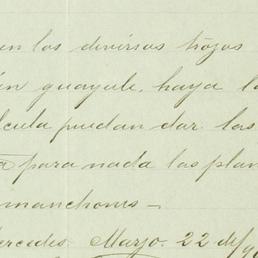 en los diversos trozos
en guayule, haya l
lcula puedan dar las
para nada las plan
manchones —
ercedes, Marzo 22 de/90